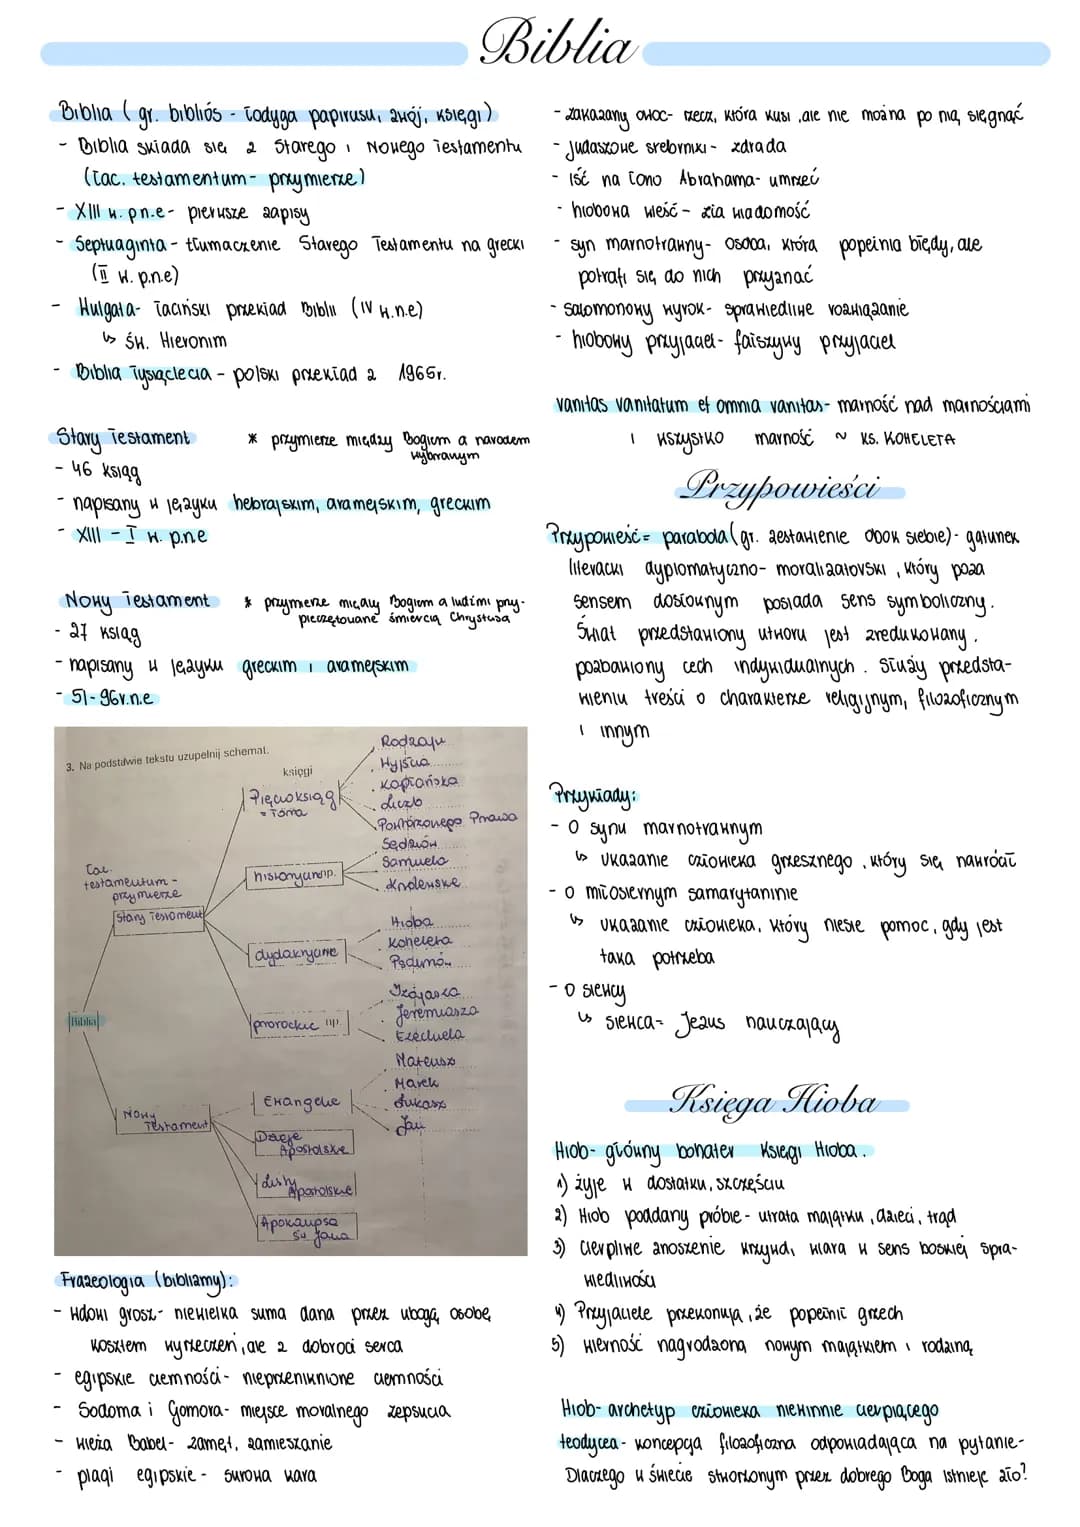 Biblia
Biblia (gr. bibliós - łodyga papirusu, zwój, księgi)
- Biblia składa się z Starego i Nowego Testamentu
(łac. testamentum - przymierze)
- XIII w. p.n.e - pierwsze zapisy
- Septuaginta - tłumaczenie Starego Testamentu na grecki
(II w. p.n.e)
- Wulgata - łaciński przekład Biblii (IV w.n.e)
↳ św. Hieronim
- Biblia Tysiąclecia - polski przekład z 1965r.
Stary Testament
* przymierze między Bogiem a narodem
wybranym
- 46 ksiąg
- napisany w języku hebrajskim, aramejskim, greckim
- XIII - I w. p.n.e
Nowy Testament
* przymierze między Bogiem a ludźmi przy-
pieczętowane śmiercią Chrystusa
- 27 ksiąg
- napisany w języku greckim i aramejskim
- 51-96r.n.e
3. Na podstawie tekstu uzupełnij schemat.
księgi
Pięcioksiąg
= Tora
Rodzaju
Wyjścia
Kapłańska
Liczb
Powtórzonego Prawa
historyczne np.
Sędziów
Samuela
Królewskie
łac.
testamentum -
przymierze
Stary Testament
dydaktyczne
Hioba
Koheleta
Psalmów
prorockie np.
Izajasza
Jeremiasza
Ezechiela
Biblia
Nowy
Testament
Ewangelie
Mateusz
Marek
Łukasz
Jan
Dzieje
Apostolskie
Listy
Apostolskie
Apokalipsa
św Jana
Frazeologia (biblizmy):
- wdowi grosz - niewielka suma dana przez ubogą osobę
kosztem wyrzeczeń, ale z dobroci serca
- egipskie ciemności - nieprzeniknione ciemności
- Sodoma i Gomora - miejsce moralnego zepsucia
- wieża Babel - zamęt, zamieszanie
- plagi egipskie - surowa kara
- zakazany owoc - rzecz, która kusi, ale nie można po nią sięgnąć
- judaszowe srebrniki - zdrada
- iść na łono Abrahama - umrzeć
- hiobowa wieść - zła wiadomość
- syn marnotrawny - osoba, która popełnia błędy, ale
potrafi się do nich przyznać
- salomonowy wyrok - sprawiedliwe rozwiązanie
- hiobowy przyjaciel - fałszywy przyjaciel
vanitas vanitatum et omnia vanitas - marność nad marnościami
i wszystko marność ~ ks. KOHELETA
Przypowieści
Przypowieść = parabola (gr. zestawienie obok siebie) - gatunek
literacki dyplomatyczno - moralizatorski, który poza
sensem dosłownym posiada sens symboliczny.
Świat przedstawiony utworu jest zredukowany,
pozbawiony cech indywidualnych. Służy przedsta-
wieniu treści o charakterze religijnym, filozoficznym
i innym
Przykłady:
- O synu marnotrawnym
↳ ukazanie człowieka grzesznego, który się nawrócił
- o miłosiernym samarytaninie
↳ ukazanie człowieka, który niesie pomoc, gdy jest
taka potrzeba
- O siewcy
↳ siewca = Jezus nauczający
Księga Hioba
Hiob - główny bohater Księgi Hioba.
1) żyje w dostatku, szczęściu
2) Hiob poddany próbie - utrata majątku, dzieci, trąd
3) Cierpliwe znoszenie krzywd, wiara w sens boskiej spra-
wiedliwości
4) Przyjaciele przekonują, że popełnił grzech
5) wierność nagrodzona nowym majątkiem i rodziną
Hiob - archetyp człowieka niewinnie cierpiącego
teodycea - koncepcja filozoficzna odpowiadająca na pytanie -
Dlaczego w świecie stworzonym przez dobrego Boga istnieje zło?